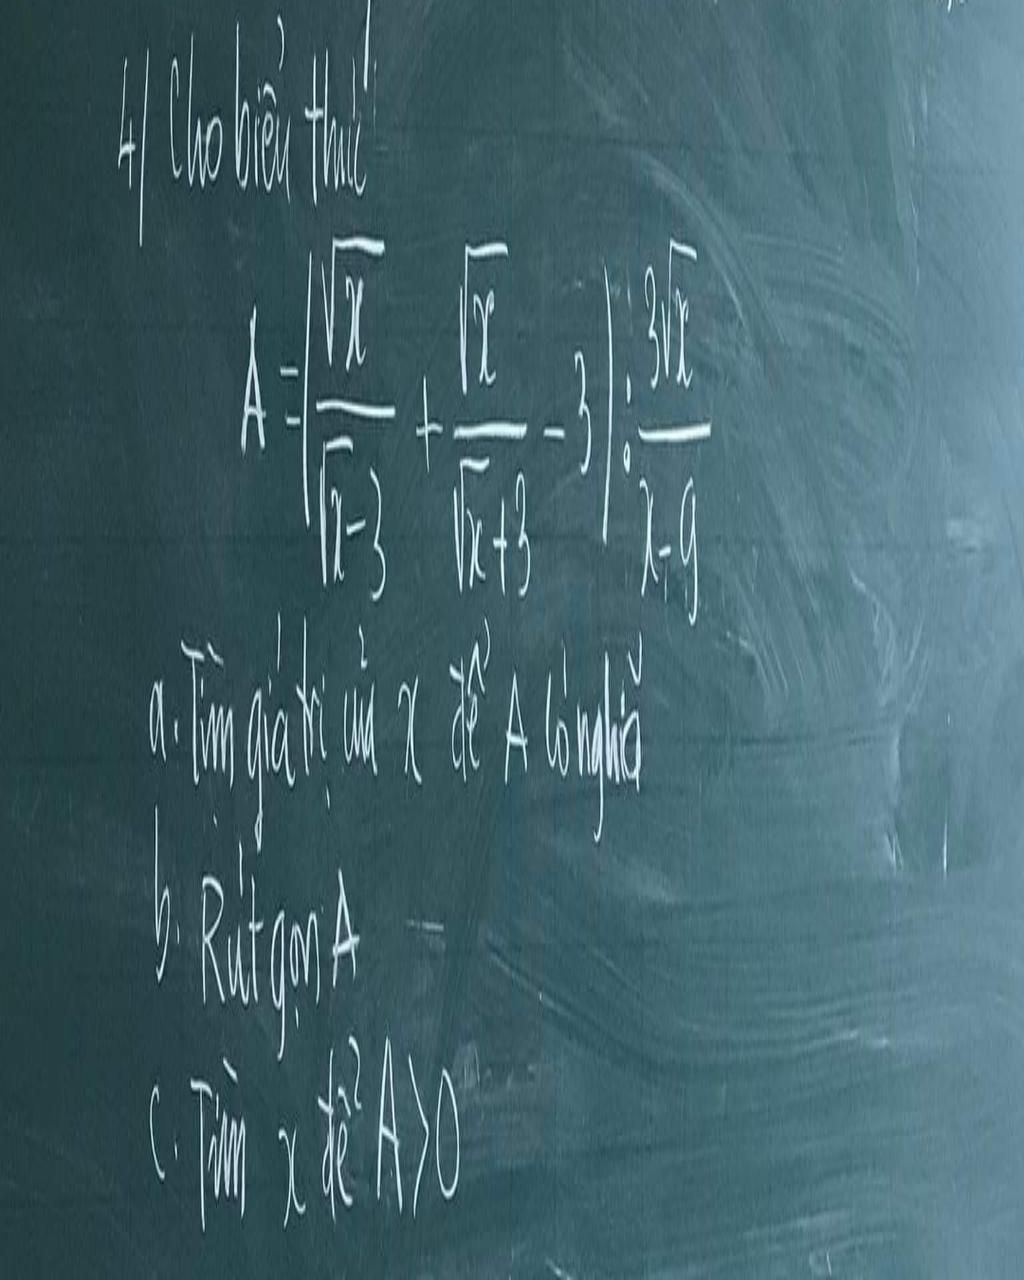 4/ Cho biểu thức
A = (√x/(√x-3) + √x/(√x+3) - 3) : 3√x/(x-9)
a. Tìm giá trị của x để A có nghĩa
b. Rút gọn A
c. Tìm x để A>0